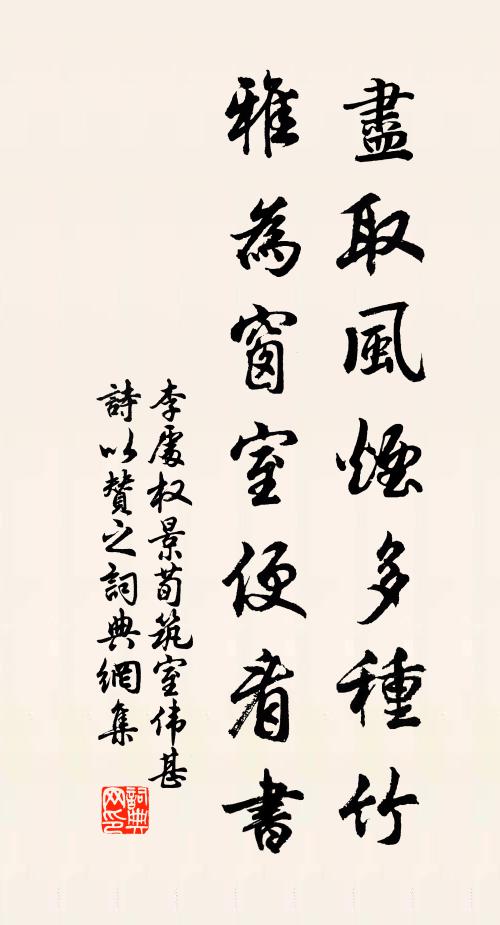 盡取風煙多種竹
雅為窗室便看書
李處权景荀筑室伟甚
詩以贊之詞典網集
詞典
网印